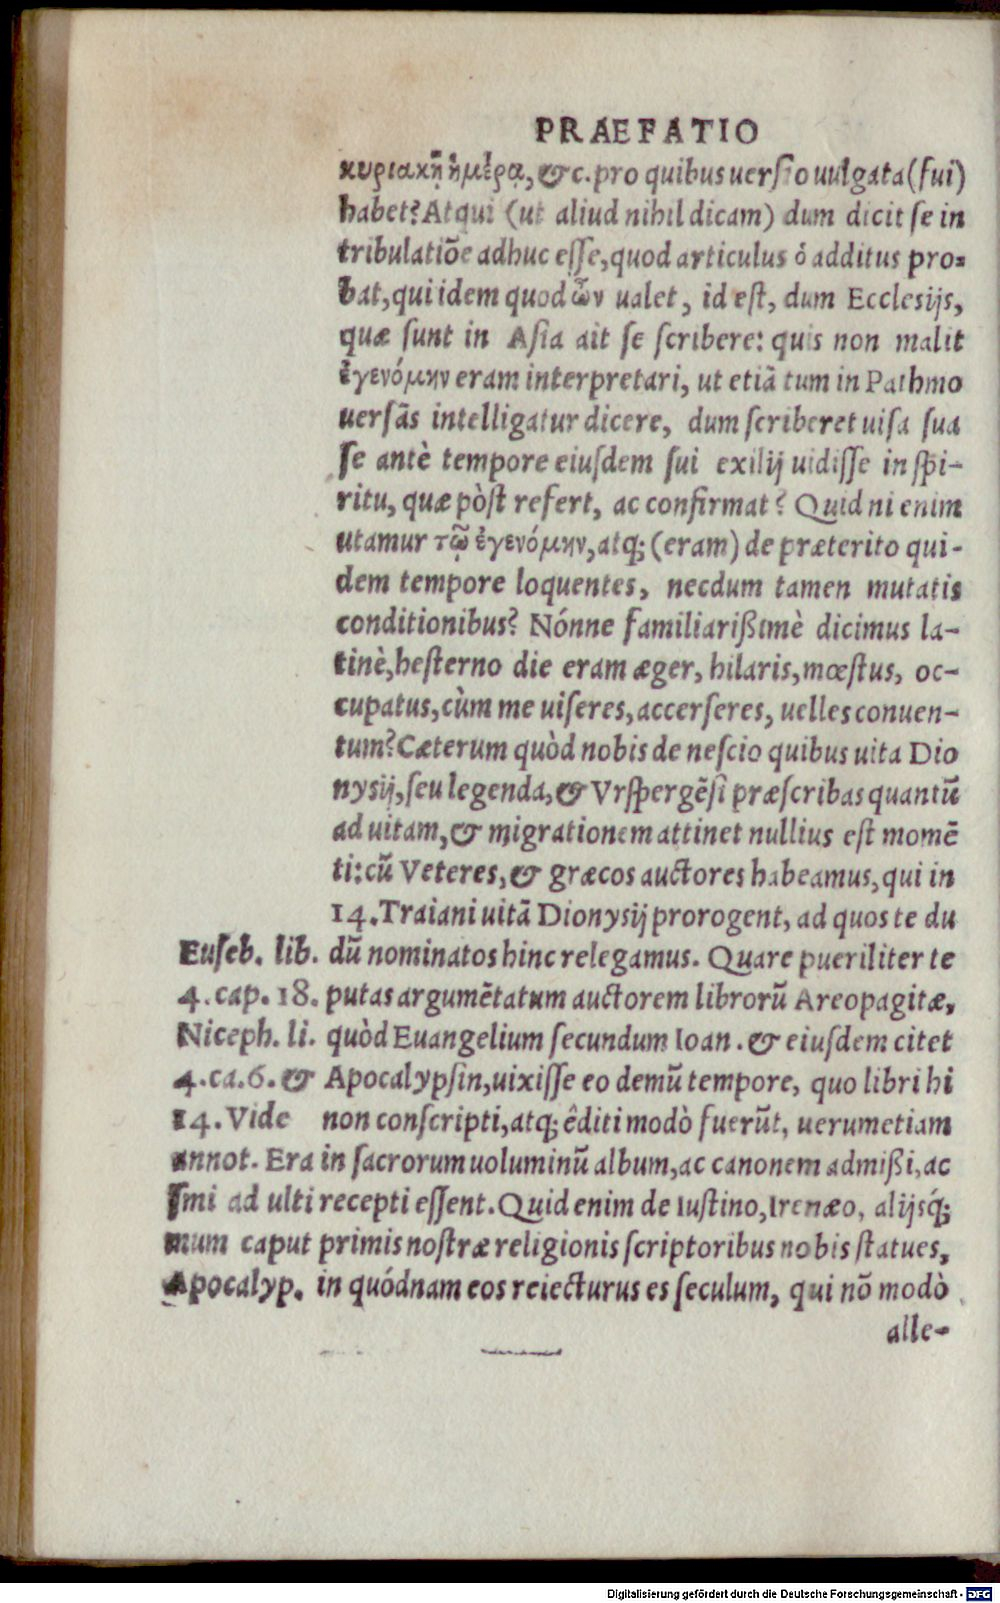 PRAEFATIO
κυριακῇ ἡμέρᾳ, &c. pro quibus uersio uulgata (fui)
habet? Atqui (ut aliud nihil dicam) dum dicit se in
tribulatiõe adhuc esse, quod articulus ὁ additus pro=
bat, qui idem quod ὢν ualet, id est, dum Ecclesijs,
quæ sunt in Asia ait se scribere: quis non malit
ἐγενόμην eram interpretari, ut etiã tum in Pathmo
uersãs intelligatur dicere, dum scriberet uisa sua
se antè tempore eiusdem sui exilij uidisse in spi-
ritu, quæ pòst refert, ac confirmat? Quid ni enim
utamur τῷ ἐγενόμην, atq; (eram) de præterito qui-
dem tempore loquentes, necdum tamen mutatis
conditionibus? Nónne familiarißimè dicimus la-
tinè, hesterno die eram æger, hilaris, mœstus, oc-
cupatus, cùm me uiseres, accerseres, uelles conuen-
tum? Cæterum quòd nobis de nescio quibus uita Dio
nysij, seu legenda, & Vrspergẽsi præscribas quantũ
ad uitam, & migrationem attinet nullius est momẽ
ti: cũ Veteres, & græcos auctores habeamus, qui in
14. Traiani uitã Dionysij prorogent, ad quos te du
dũ nominatos hinc relegamus. Quare pueriliter te
putas argumẽtatum auctorem librorũ Areopagitæ,
quòd Euangelium secundum Ioan. & eiusdem citet
Apocalypsin, uixisse eo demũ tempore, quo libri hi
non conscripti, atq; êditi modò fuerũt, uerumetiam
in sacrorum uoluminũ album, ac canonem admißi, ac
recepti essent. Quid enim de Iustino, Irenæo, alijsq́;
primis nostræ religionis scriptoribus nobis statues,
in quódnam eos reiecturus es seculum, qui nõ modò
alle-
Euseb. lib.
4. cap. 18.
Niceph. li.
4. ca. 6. &
14. Vide
annot. Era
smi ad ulti
mum caput
Apocalyp.
Digitalisierung gefördert durch die Deutsche Forschungsgemeinschaft - DFG